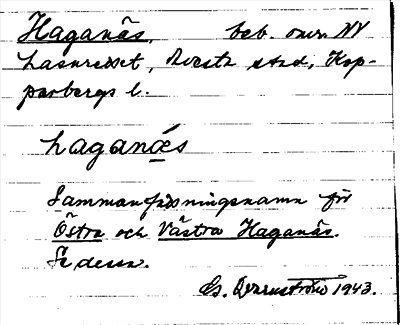 Haganäs. beb. omr. NV
Lasarettet, Avesta stad, Kop-
parbergs l.
haganæs
Sammanfattningsnamn för
Östra och Västra Haganäs.
Se dessa.
G. 1943.